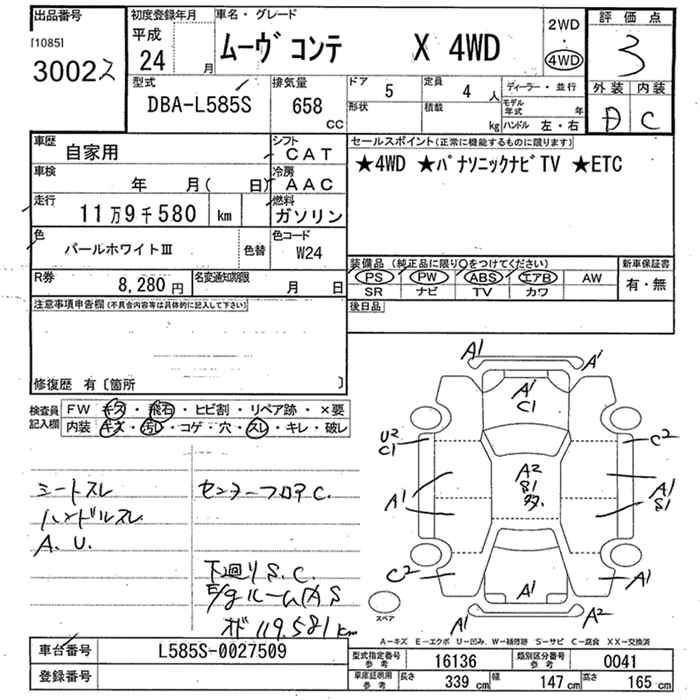 出品番号
[1085]
3002ス
初度登録年月
平成
24 月
車名・グレード
ムーヴ コンテ X 4WD
2WD
・
4WD
評価点
3
外装 内装
D C
型式
DBA-L585S
排気量
658
CC
ドア
5
定員
4 人
形状
積載
kg
ディーラー・並行
モデル年式 年
ハンドル 左・右
車歴
自家用
シフト
CAT
車検
年 月( 日)
冷房
AAC
走行
11万9千580 km
燃料
ガソリン
色
パールホワイトⅢ
色替
色コード
W24
R券
8,280 円
名変通知期限
月 日
セールスポイント(正常に機能するものに限ります)
★4WD ★パナソニックナビTV ★ETC
装備品 (純正品に限り○をつけてください)
PS PW ABS エアB AW
SR ナビ TV カワ
新車保証書
有・無
後日品
注意事項申告欄(不具合内容等は具体的に記入して下さい)
修復歴 有〔箇所 〕
検査員記入欄
FW キズ・飛石・ヒビ割・リペア跡・×要
内装 キズ・汚レ・コゲ・穴・スレ・キレ・破レ
シートスレ
ハンドルスレ
A.U.
センターフロアC.
下廻りS.C.
E/gルーム内A S
オド119.581km
A1
A1
A1
C1
U2
C1
C2
A2
S1
多.
A1
A1
S1
C2
A1
A1
A1
A2
スペア
A-キズ E-エクボ U-凹み、W-補修跡 S-サビ C-腐食 XX-交換済
車台番号
L585S-0027509
登録番号
型式指定番号
参考
16136
類別区分番号
参考
0041
車庫証明用
参考
長さ 339 cm
幅 147 cm
高さ 165 cm